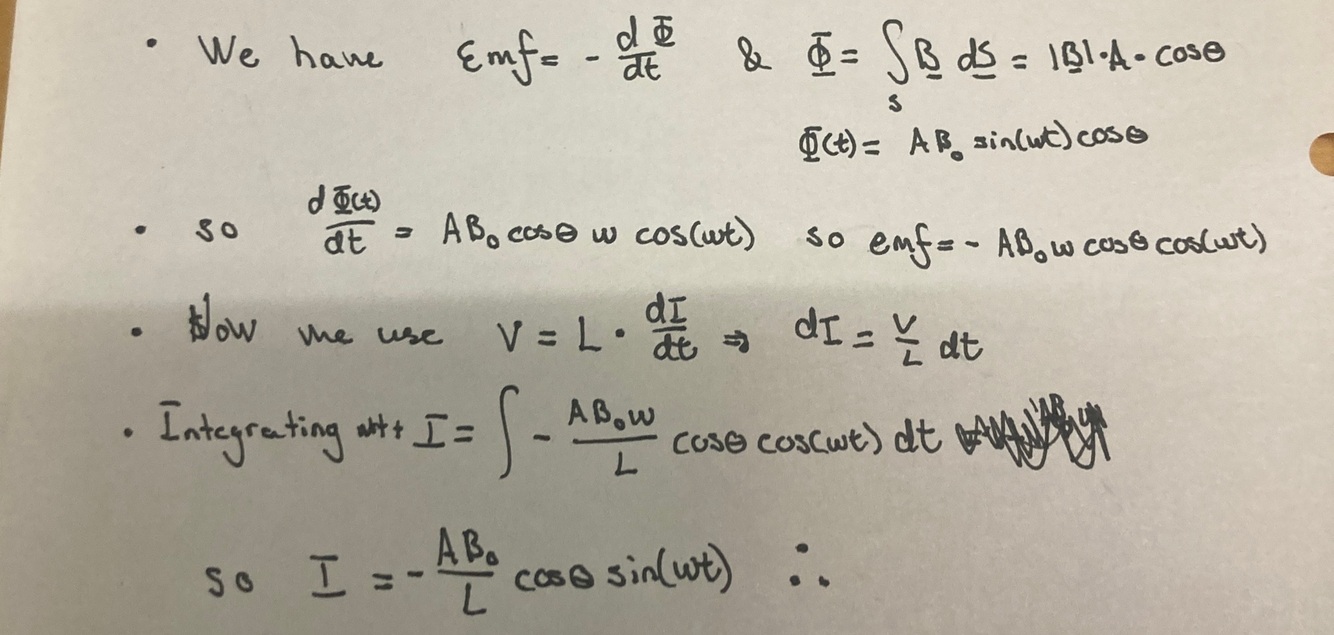 • We have Emf = - dΦ/dt & Φ = ∫_S B dS = |B|·A·cosθ
Φ(t) = AB₀ sin(wt) cosθ
• so dΦ(t)/dt = AB₀ cosθ w cos(wt) so emf = - AB₀ w cosθ cos(wt)
• Now we use V = L · dI/dt ⇒ dI = V/L dt
• Integrating wrt t I = ∫ - AB₀w/L cosθ cos(wt) dt
so I = - AB₀/L cosθ sin(wt) ∴